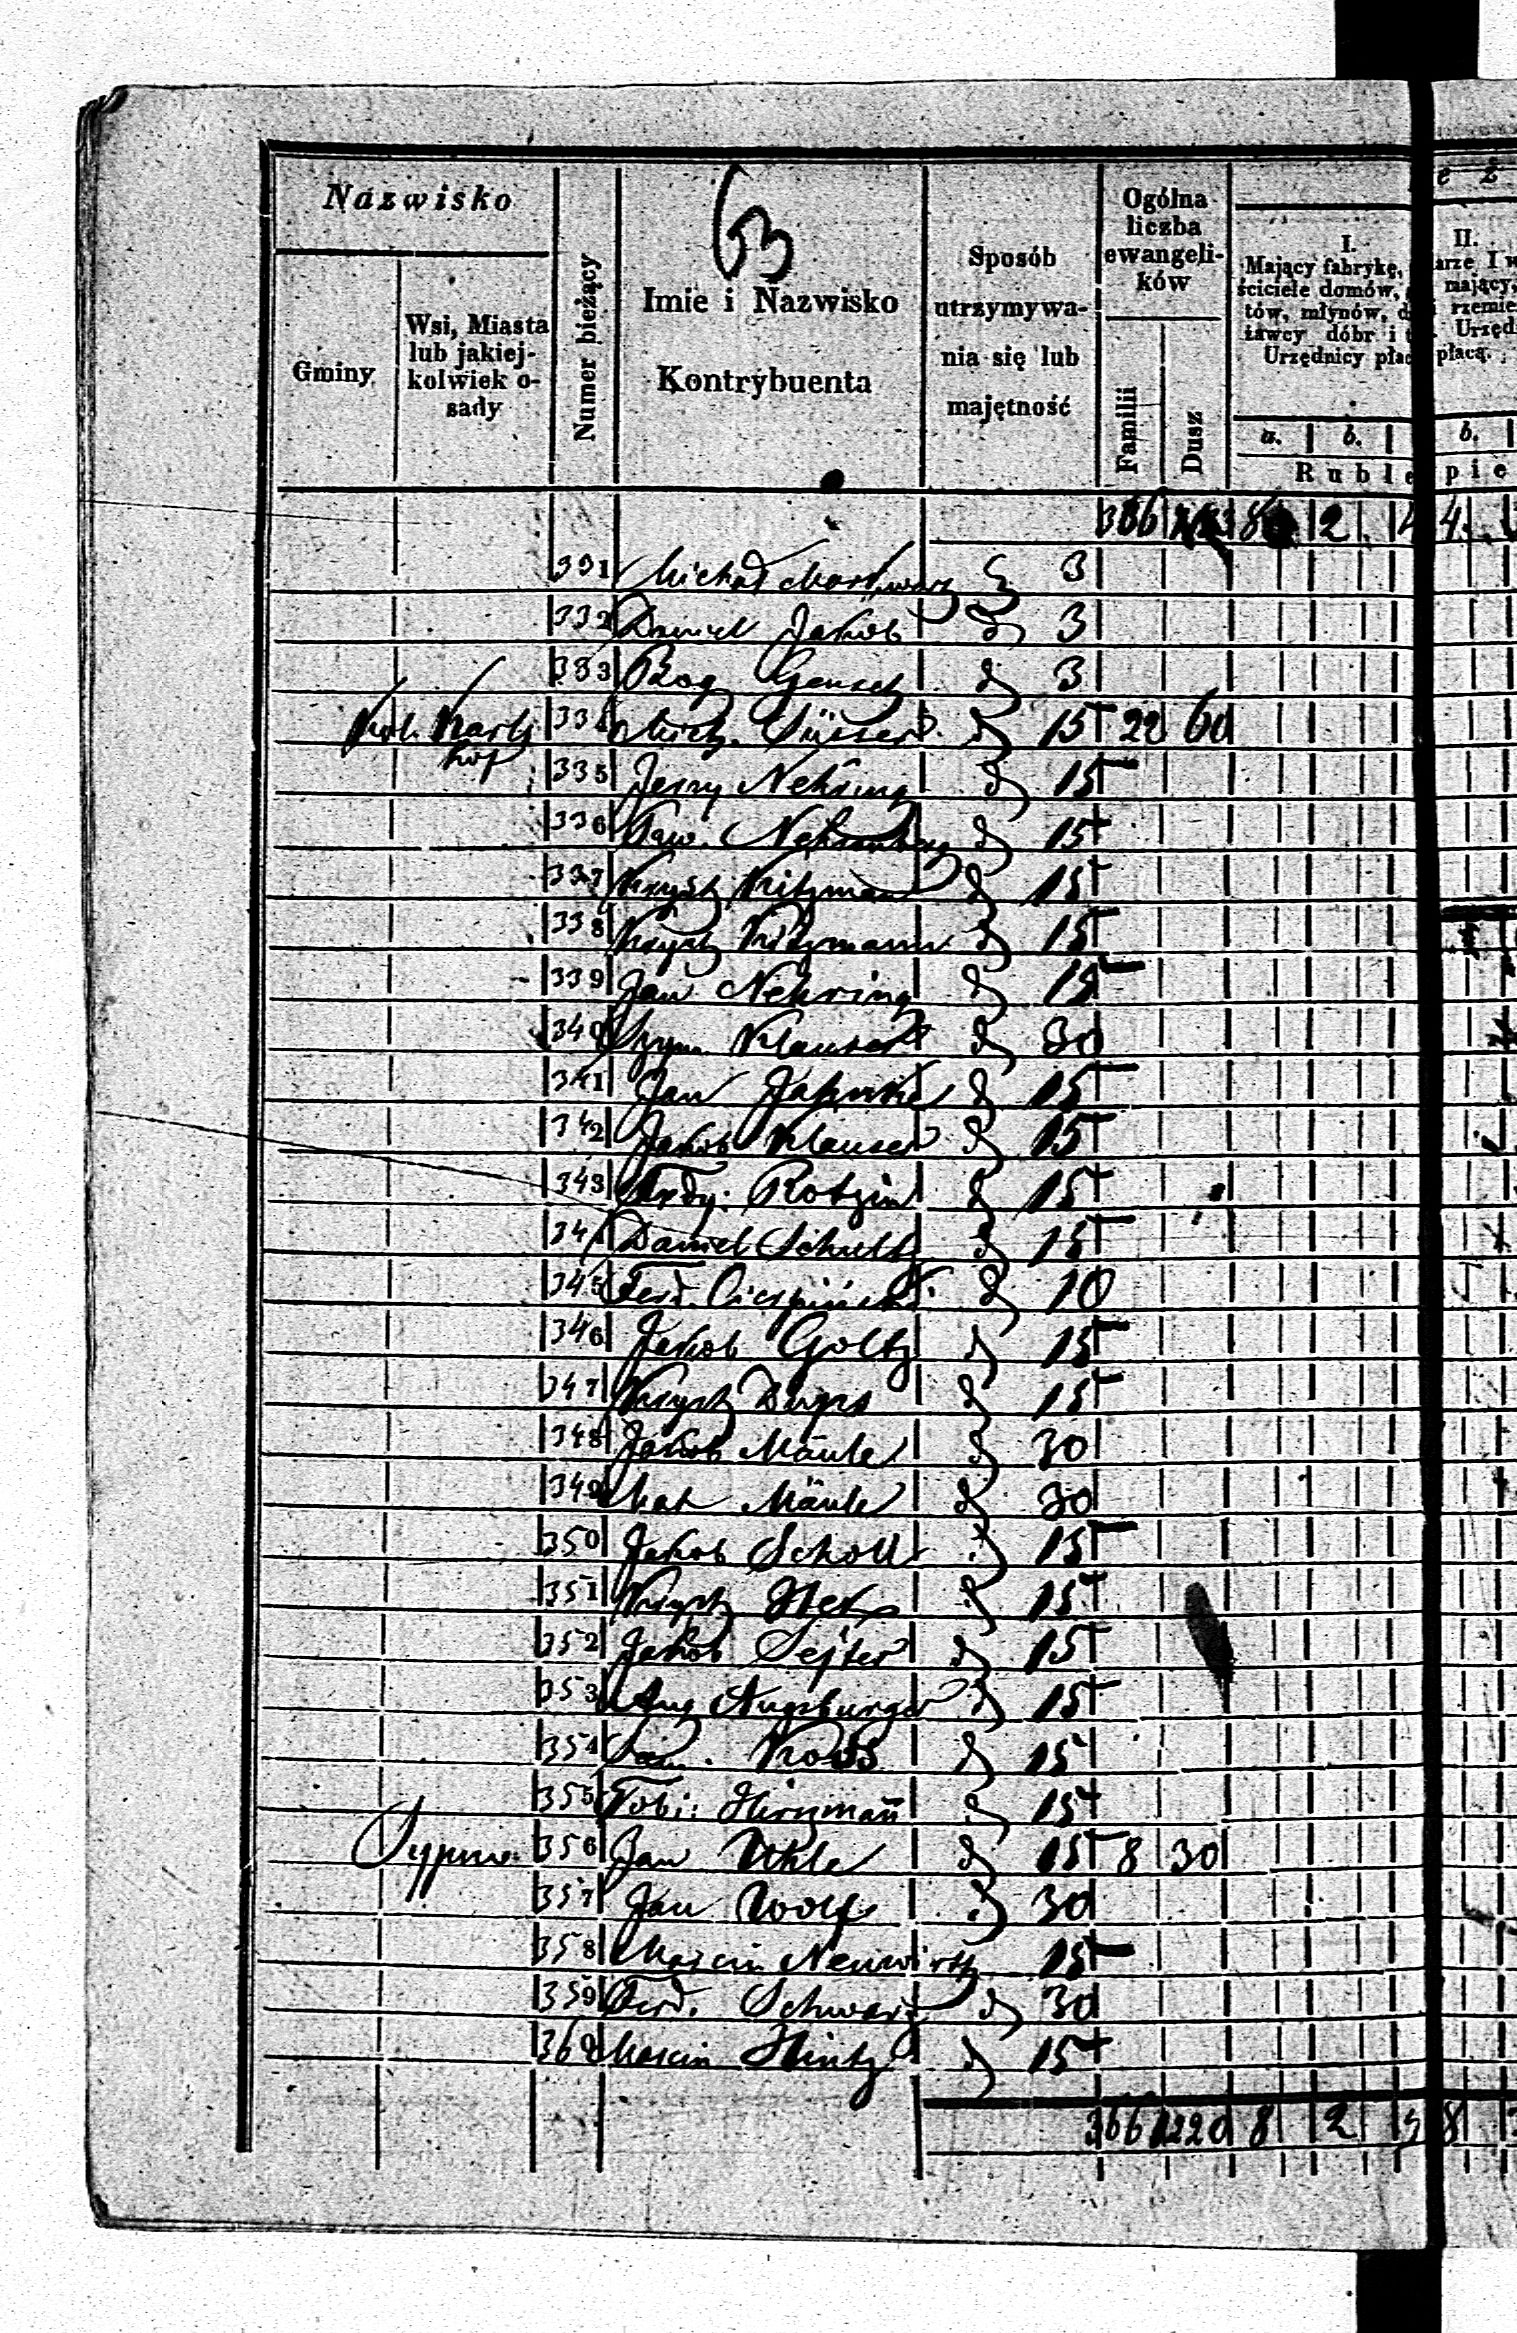 63
Nazwisko
Gminy
Wsi, Miasta
lub jakiej-
kolwiek o-
sady
Numer bieżący
Imie i Nazwisko
Kontrybuenta
Sposób
utrzymywa-
nia się lub
majętność
Ogólna
liczba
ewangeli-
ków
Familii
Dusz
I.
Mający fabrykę,
ściciele domów,
tów, młynów, d
żawcy dóbr i
Urzędnicy płac
a. b.
Ruble
e ż
II.
arze I w
mający,
rzemie
Urzęd
płacą.
b.
pie
386 8 2 4
331 Michał 3
332 Daniel Jakob 3
333 Bog Gensch 3
Kol. Karls 334 Mich. Süsser 15 22 60
hof
335 Jerzy Nehring 15
336 Naw. 15
337 Kryst Kitzman 15
338 Kryst Kitzmann 15
339 Jan Nehring 15
340 Szym. Klauser 30
341 Jan Jahnke 15
342 Jakob Klauser 15
343 Frdy. Rotzin 15
344 Daniel Schultz 15
345 Ferd. 10
346 Jakob Goltz 15
347 Kryst 15
348 Jakob Mäule 30
349 Mat Mäule 30
350 Jakob Scholl 15
351 Kryst 15
352 Jakob Sejter 15
353 Aug Augsburger 15
354 15
355 Tobi: Hirzmañ 15
356 Jan Uhle 15 8 30
357 Jan Wolf 30
358 Marcin Neuwirth 15
359 Ferd. Schwarz 30
360 Marcin Hintz 15
366 1220 8 2 5 8